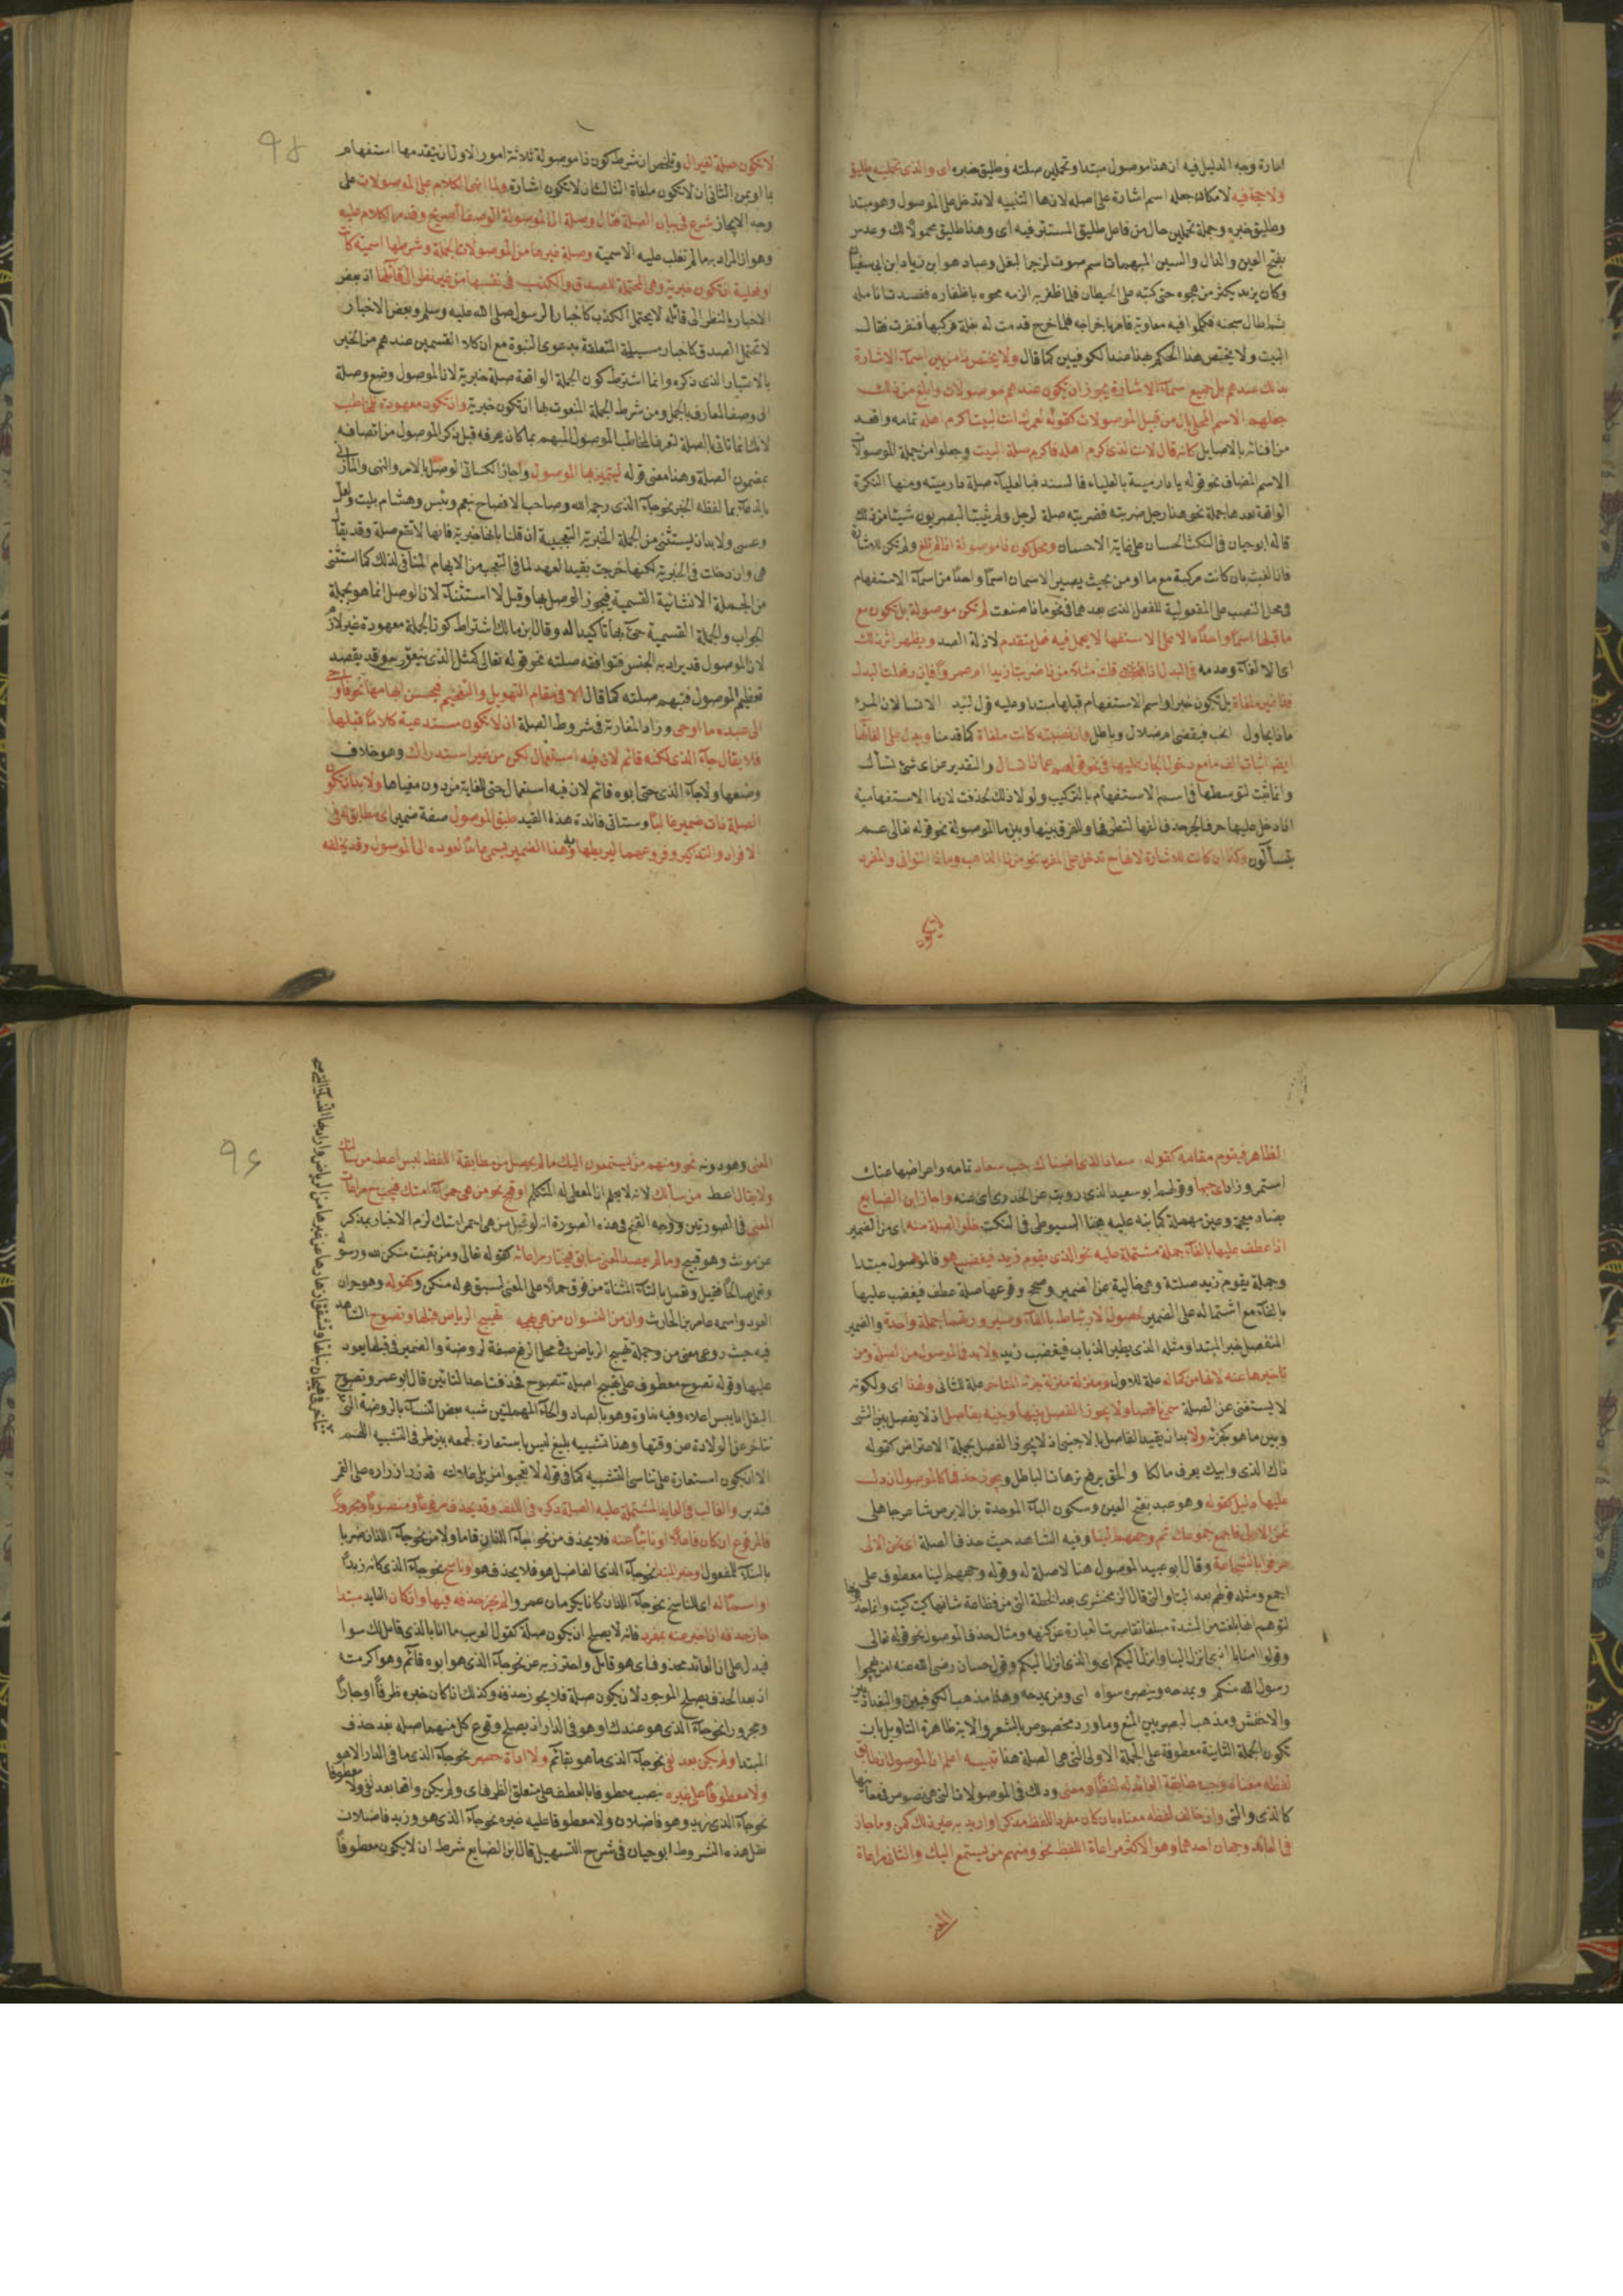 امارة وجه الدليل فيه ان هذا موصول مبتدا وتحملين صلته وطليق خبره اى والذى تحملينه طليق
ولا حجة فيه لامكان جعله اسم اشارة على اصله لان ها التنبيه لا تدخل على الموصول وهو مبتدا
وطليق خبره وجملة تحملين حال من فاعل طليق المستتر فيه اى وهذا طليق محمولا لك وعدس
بفتح العين والدال والسين المهملات اسم صوت لزجر البغل وعباد هو ابن زياد ابن ابى سفيان
وكان يزيد يكثر من هجوه حتى كتبه على الحيطان فلما ظفر به الزمه محوه باظفاره ففسدت انامله
ثم اطال سجنه فكلموا فيه معاوية فامر باخراجه فلما خرج قدمت له بغلة فركبها فنفرت فقال
البيت ولا يختص هذا الحكم بهذا عند الكوفيين كما قال ولا يختص ذا من بين اسماء الاشارة
بذلك عندهم بل جميع اسماء الاشارة يجوز ان تكون عندهم موصولات وابلغ من ذلك
جعلهم الاسم المحلى بال من قبيل الموصولات كقوله لعمرى لانت البيت اكرم اهله تمامه واقعد
من افنائه بالاصايل كانه قال لانت الذى اكرم اهله فاكرم صلة البيت وجعلوا من جملة الموصولات
الاسم المضاف نحو قوله يا دار مية بالعلياء فالسند فبالعلياء صلة دار مية ومنها النكرة
الواقعة بعدها جملة نحو هذا رجل ضربته فضربته صلة لرجل ولم يثبت البصريون شيئا من ذلك
قاله ابو حيان فى النكت الحسان على غاية الاحسان ومحل كون ذا موصولة اذا لم تلغ ولم تكن للاشارة
فاذا الغيت بان كانت مركبة مع ما او من بحيث يصير الاسمان اسما واحدا من اسماء الاستفهام
فى محل النصب على المفعولية للفعل الذى بعدهما فى نحو ماذا صنعت لم تكن موصولة بل تكون مع
ما قبلها اسما واحدا دالا على الاستفهام لا يعمل فيه فعل متقدم لان له الصدر ويظهر اثر ذلك
اى الالغاء وعدمه فى البدل اذا قلت مثلا من ذا ضربت ازيدا ام عمرو
فذا غير ملغاة بل تكون خبرا واسم الاستفهام قبلها مبتدا وعليه قول لبيد الا تسالان المرء
ماذا يحاول انحب فيقضى ام ضلال وباطل وان نصبته كانت ملغاة كما قدمنا ويدل على الغائها
ايضا اثبات الف ما مع دخول الجار عليها فى نحو قولهم عماذا تسال والتقدير عن اى شئ تسأل
وانما ثبت لتوسطها فى اسم الاستفهام بالتركيب ولو لا ذلك لحذفت لان ما الاستفهامية
اذا دخل عليها حرف الجر حذف الفها لتطرفها وللفرق بينها وبين ما الموصولة نحو قوله تعالى عم
يتسألون وكذا ان كانت للاشارة لانها تدخل على المفرد نحو من ذا الذاهب وماذا التوانى والمفرد
لا تكون صلة لغير ال وتلخص ان شرط كون ذا موصولة ثلاثة امور الاول ان يتقدمها استفهام
بما او بمن الثانى ان لا تكون ملغاة الثالث ان لا تكون اشارة ولما انهى الكلام على الموصولات على
وجه الايجاز شرع فى بيان الصلة فقال وصلة ال الموصولة الوصف الصريح وقد مر الكلام عليه
وهو ان المراد به ما لم تغلب عليه الاسمية وصلة غيرها من الموصولات الجملة وشرطها اسمية كانت
او فعلية ان تكون خبرية وهى المحتملة للصدق والكذب فى نفسها من غير نظر الى قائلها اذ بعض
الاخبار بالنظر الى قائله لا يحتمل الكذب كاخبار الرسول صلى الله عليه وسلم وبعض الاخبار
لا تحتمل الصدق كاخبار مسيلمة المتعلقة بدعوى النبوة مع ان كلا القسمين عندهم من الخبر
بالاعتبار الذى ذكره وانما اشترط كون الجملة الواقعة صلة خبرية لان الموصول وضع وصلة
الى وصف المعارف بالجمل ومن شرط الجملة المنعوت بها ان تكون خبرية وان تكون معهودة للمخاطب
لانك انما تاتى بالصلة لتعرف المخاطب الموصول المبهم بما كان يعرفه قبل ذكر الموصول من اتصافه
بمضمون الصلة وهذا معنى قوله ليتميز بها الموصول واجاز الكسائى الوصل بالامر والنهى والمازنى
بالدعاء بما لفظه الخبر نحو جاء الذى رحمه الله وصاحب الافصاح بنعم وبئس وهشام بليت ولعل
وعسى ولابد ان يستثنى من الجملة الخبرية التعجبية ان قلنا بانها خبرية فانها لا تقع صلة وقد يقال
هى وان دخلت فى الخبرية لكنها خرجت بقيد العهد لما فى التعجب من الابهام المنافى لذلك كما استثنى
من الجملة الانشائية القسمية فيجوز الوصل بها وقيل لا استثناء لان الوصل انما هو بجملة
الجواب والجملة القسمية جئ بها تاكيدا له وقال ابن مالك اشتراط كون الجملة معهودة غير لازم
لان الموصول قد يراد به الجنس فتوافقه صلته نحو قوله تعالى كمثل الذى ينعق وقد يقصد
تعظيم الموصول فتبهم صلته كما قال الا فى مقام التهويل والتفخيم فيحسن ابهامها نحو فاوحى
الى عبده ما اوحى وزاد المغاربة فى شروط الصلة ان لا تكون مستدعية كلاما قبلها
فلا يقال جاء الذى لكنه قائم لان فيه استعمال لكن من غير استدراك وهو خلاف
وضعها ولا جاء الذى حتى ابوه قائم لان فيه استعمال حتى للغاية من دون مغياها ولابد ان تكون
الصلة ذات ضمير غالبا وستاتى فائدة هذا القيد طبق الموصول صفة ضمير اى مطابق له فى
الافراد والتذكير وفروعهما ليربطها به وهذا الضمير يسمى عائدا لعوده الى الموصول وقد يخلفه
الظاهر فيقوم مقامه كقوله سعاد الذى اضناك حب سعاد تمامه واعراضها عنك
استمر وزادا اى حبها وقولهم ابو سعيد الذى رويت عن الخدرى اى عنه واجاز ابن الضايع
بضاد معجمة وعين مهملة كما نبه عليه السيوطى فى النكت خلو الصلة منه اى من الضمير
اذا عطف عليها بالفاء جملة مشتملة عليه نحو الذى يقوم زيد فيغضب هو فالموصول مبتدا
وجملة يقوم زيد صلته وهى خالية عن الضمير وصحح وقوعها صلة عطف فيغضب عليها
بالفاء مع اشتماله على الضمير لحصول الارتباط بالفاء وصيرورتهما جملة واحدة والضمير
المنفصل خبر المبتدا ومثله الذى يطير الذباب فيغضب زيد ولابد فى الموصول من الصلة ومن
تاخيرها عنه لانها من كماله علة للاول ومنزلة منزلة جزئه المتاخر علة للثانى ولهذا اى ولكونه
لا يستغنى عن الصلة سمى ناقصا ولا يجوز الفصل بينها وبينه بفاصل اذ لا يفصل بين الشئ
وبين ما هو كجزئه ولابد ان يقيد الفاصل بالاجنبى اذ لا يجوز الفصل بجملة الاعتراض كقوله
ذاك الذى وابيك يعرف مالكا والحق يدفع ترهات الباطل ويجوز حذفها كالموصول ان دل
عليها دليل كقوله وهو عبيد بفتح العين وسكون الباء الموحدة بن الابرص شاعر جاهلى
نحن الاولى فاجمع جموعك ثم وجههم الينا وفيه الشاهد حيث حذف الصلة اى نحن الالى
عرفوا بالشجاعة وقال ابو عبيد الموصول هنا لا صلة له وقوله وجههم الينا معطوف على
اجمع ومثله قولهم بعد اللتيا والتى قال الزمخشرى بعد الخطة التى من فظاعة شانها كيت كيت وانما حذفوا
لتوهم انها بلغت من الشدة مبلغا تقاصرت العبارة عن كنهه ومثال حذف الموصول نحو قوله تعالى
وقولوا امنا بالذى انزل الينا وانزل اليكم اى والذى انزل اليكم وقول حسان رضى الله عنه امن يهجو
رسول الله منكم ويمدحه وينصره سواء اى ومن يمدحه وهذا مذهب الكوفيين والبغداديين
والاخفش ومذهب البصريين المنع وما ورد مخصوص بالشعر والاية ظاهرة التاويل بان
تكون الجملة الثانية معطوفة على الجملة الاولى التى هى الصلة هذا تنبيه اعلم ان الموصول ان طابق
لفظه معناه وجب مطابقة العائد له لفظا ومعنى وذلك فى الموصولات التى هى نصوص فى معانيها
كالذى والتى وان خالف لفظه معناه بان كان مفرد اللفظ مذكرا او اريد به غير ذلك كمن وما جاز
فى العائد وجهان احدهما وهو الاكثر مراعاة اللفظ نحو ومنهم من يستمع اليك والثانى مراعاة
المعنى
المعنى وهو دونه نحو ومنهم من يستمعون اليك ما لم يحصل من مطابقة اللفظ لبس اعط من سالتك
ولا يقال اعط من سألك لانه لا يعلم ان المعطى له المتكلم او قبح نحو من هى حمراء امتك فيجب مراعاة
المعنى فى الصورتين ووجه القبح فى هذه الصورة انه لو قيل من هى احمر امتك لزم الاخبار بمذكر
عن مونث وهو قبيح وما لم يعضد المعنى سابق فيختار مراعاته كقوله تعالى ومن يقنت منكن لله ورسوله
وتعمل صالحا فقيل وتعمل بالتاء المثناة من فوق حملا على المعنى لسبق قوله منكن وكقوله وهو جران
العود واسمه عامر بن الحارث وان من النسوان من هى روضة تهيج الرياض قبلها وتصوح الشاهد
فيه حيث روعى معنى من وجملة تهيج الرياض فى محل الرفع صفة لروضة والضمير فى قبلها يعود
عليها وقوله تصوح معطوف على تهيج اصله تتصوح فحذفت احدى التائين قال ابو عمرو وتصوح
البقل اذا يبس اعلاه وفيه نداوة وهو بالصاد والحاء المهملتين شبه بعض النساء بالروضة التى
تتاخر عن الولادة عن وقتها وهذا تشبيه بليغ ليس باستعارة لجمعه بين طرفى التشبيه اللهم
الا ان يكون استعارة على تناسى التشبيه كما فى قوله لا تعجبوا من بلى غلالته قد زر ازراره على القمر
فتدبر والغالب فى العايد المشتملة عليه الصلة ذكره فى اللفظ وقد يحذف مرفوعا ومنصوبا ومجرورا
فالمرفوع ان كان فاعلا او نائبا عنه فلا يحذف من نحو جاء اللذان قاما ولا من نحو جاء اللذان ضربا
بالبناء للمفعول او خبر المبتدا نحو جاء الذى الفاضل هو فلا يحذف هو او ناسخ نحو جاء الذى كانه زيد
او اسما له اى للناسخ نحو جاء اللذان كانا يكرمان عمروا لم يجز حذفه فيها وان كان العايد مبتدا
جاز حذفه ان اخبر عنه بمفرد فانه لا يصلح ان يكون صلة كقول العرب ما انا بالذى قائل لك سوا
فيدل على ان العائد محذوف اى هو قائل واحترز به عن نحو جاء الذى هو ابوه قائم وهو اكرمته
اذ بعد الحذف يصلح الموجود لان يكون صلة فلا يجوز حذفه وكذلك اذا كان خبره ظرفا او جارا
ومجرورا نحو جاء الذى هو عندك او هو فى الدار اذ يصلح وقوع كل منهما صلة بعد حذف
المبتدا ولم يكن بعد نفى نحو جاء الذى ما هو بقائم ولا اداة حصر نحو جاء الذى ما فى الدار الا هو
ولا معطوفا على غيره بنصب معطوفا بالعطف على متعلق الظرف اى ولم يكن واقعا بعد نفى ولا معطوفا
نحو جاء الذى زيد وهو فاضلان ولا معطوفا عليه غيره نحو جاء الذى هو وزيد فاضلان
نقل هذه الشروط ابو حيان فى شرح التسهيل قال ابن الضايع شرط ان لا يكون معطوفا